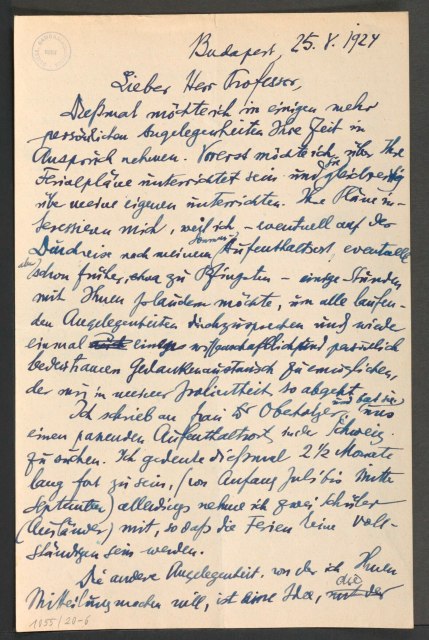 Budapest, 25. V. 1924
Lieber Herr Professor,
Diesmal möchte ich in einigen mehr
persönlichen Angelegenheiten Ihre Zeit in
Anspruch nehmen. Vorerst möchte ich über Ihre
Ferialpläne unterrichtet sein und Sie gleichzeitig
über meine eigenen unterrichten. Ihre Pläne in-
teressieren mich, weil ich, – eventuell auf der
Durchreise nach meinem Sommer Aufenthaltsort, eventuell
aber schon früher, etwa zu Pfingsten – einige Stunden
mit Ihnen plaudern möchte, um alle laufen-
den Angelegenheiten durchzusprechen und wieder
einmal einen wissenschaftlich und persönlich
bedeutsamen Gedankenaustausch zu ermöglichen,
der mir in meiner Isoliertheit so abgeht.
Ich schrieb an Frau Dr Oberholzer, uns
einen passenden Aufenthaltsort in der Schweiz
zu suchen. Ich gedenke diesmal 2 ½ Monate
lang fort zu sein, (von Anfang Juli bis Mitte
September) allerdings nehme ich zwei Schüler
(Ausländer) mit, so daß die Ferien keine voll-
ständigen sein werden.
Die andere Angelegenheit, von der ich Ihnen
Mitteilung machen will, ist eine Idee, die
1055/20-6